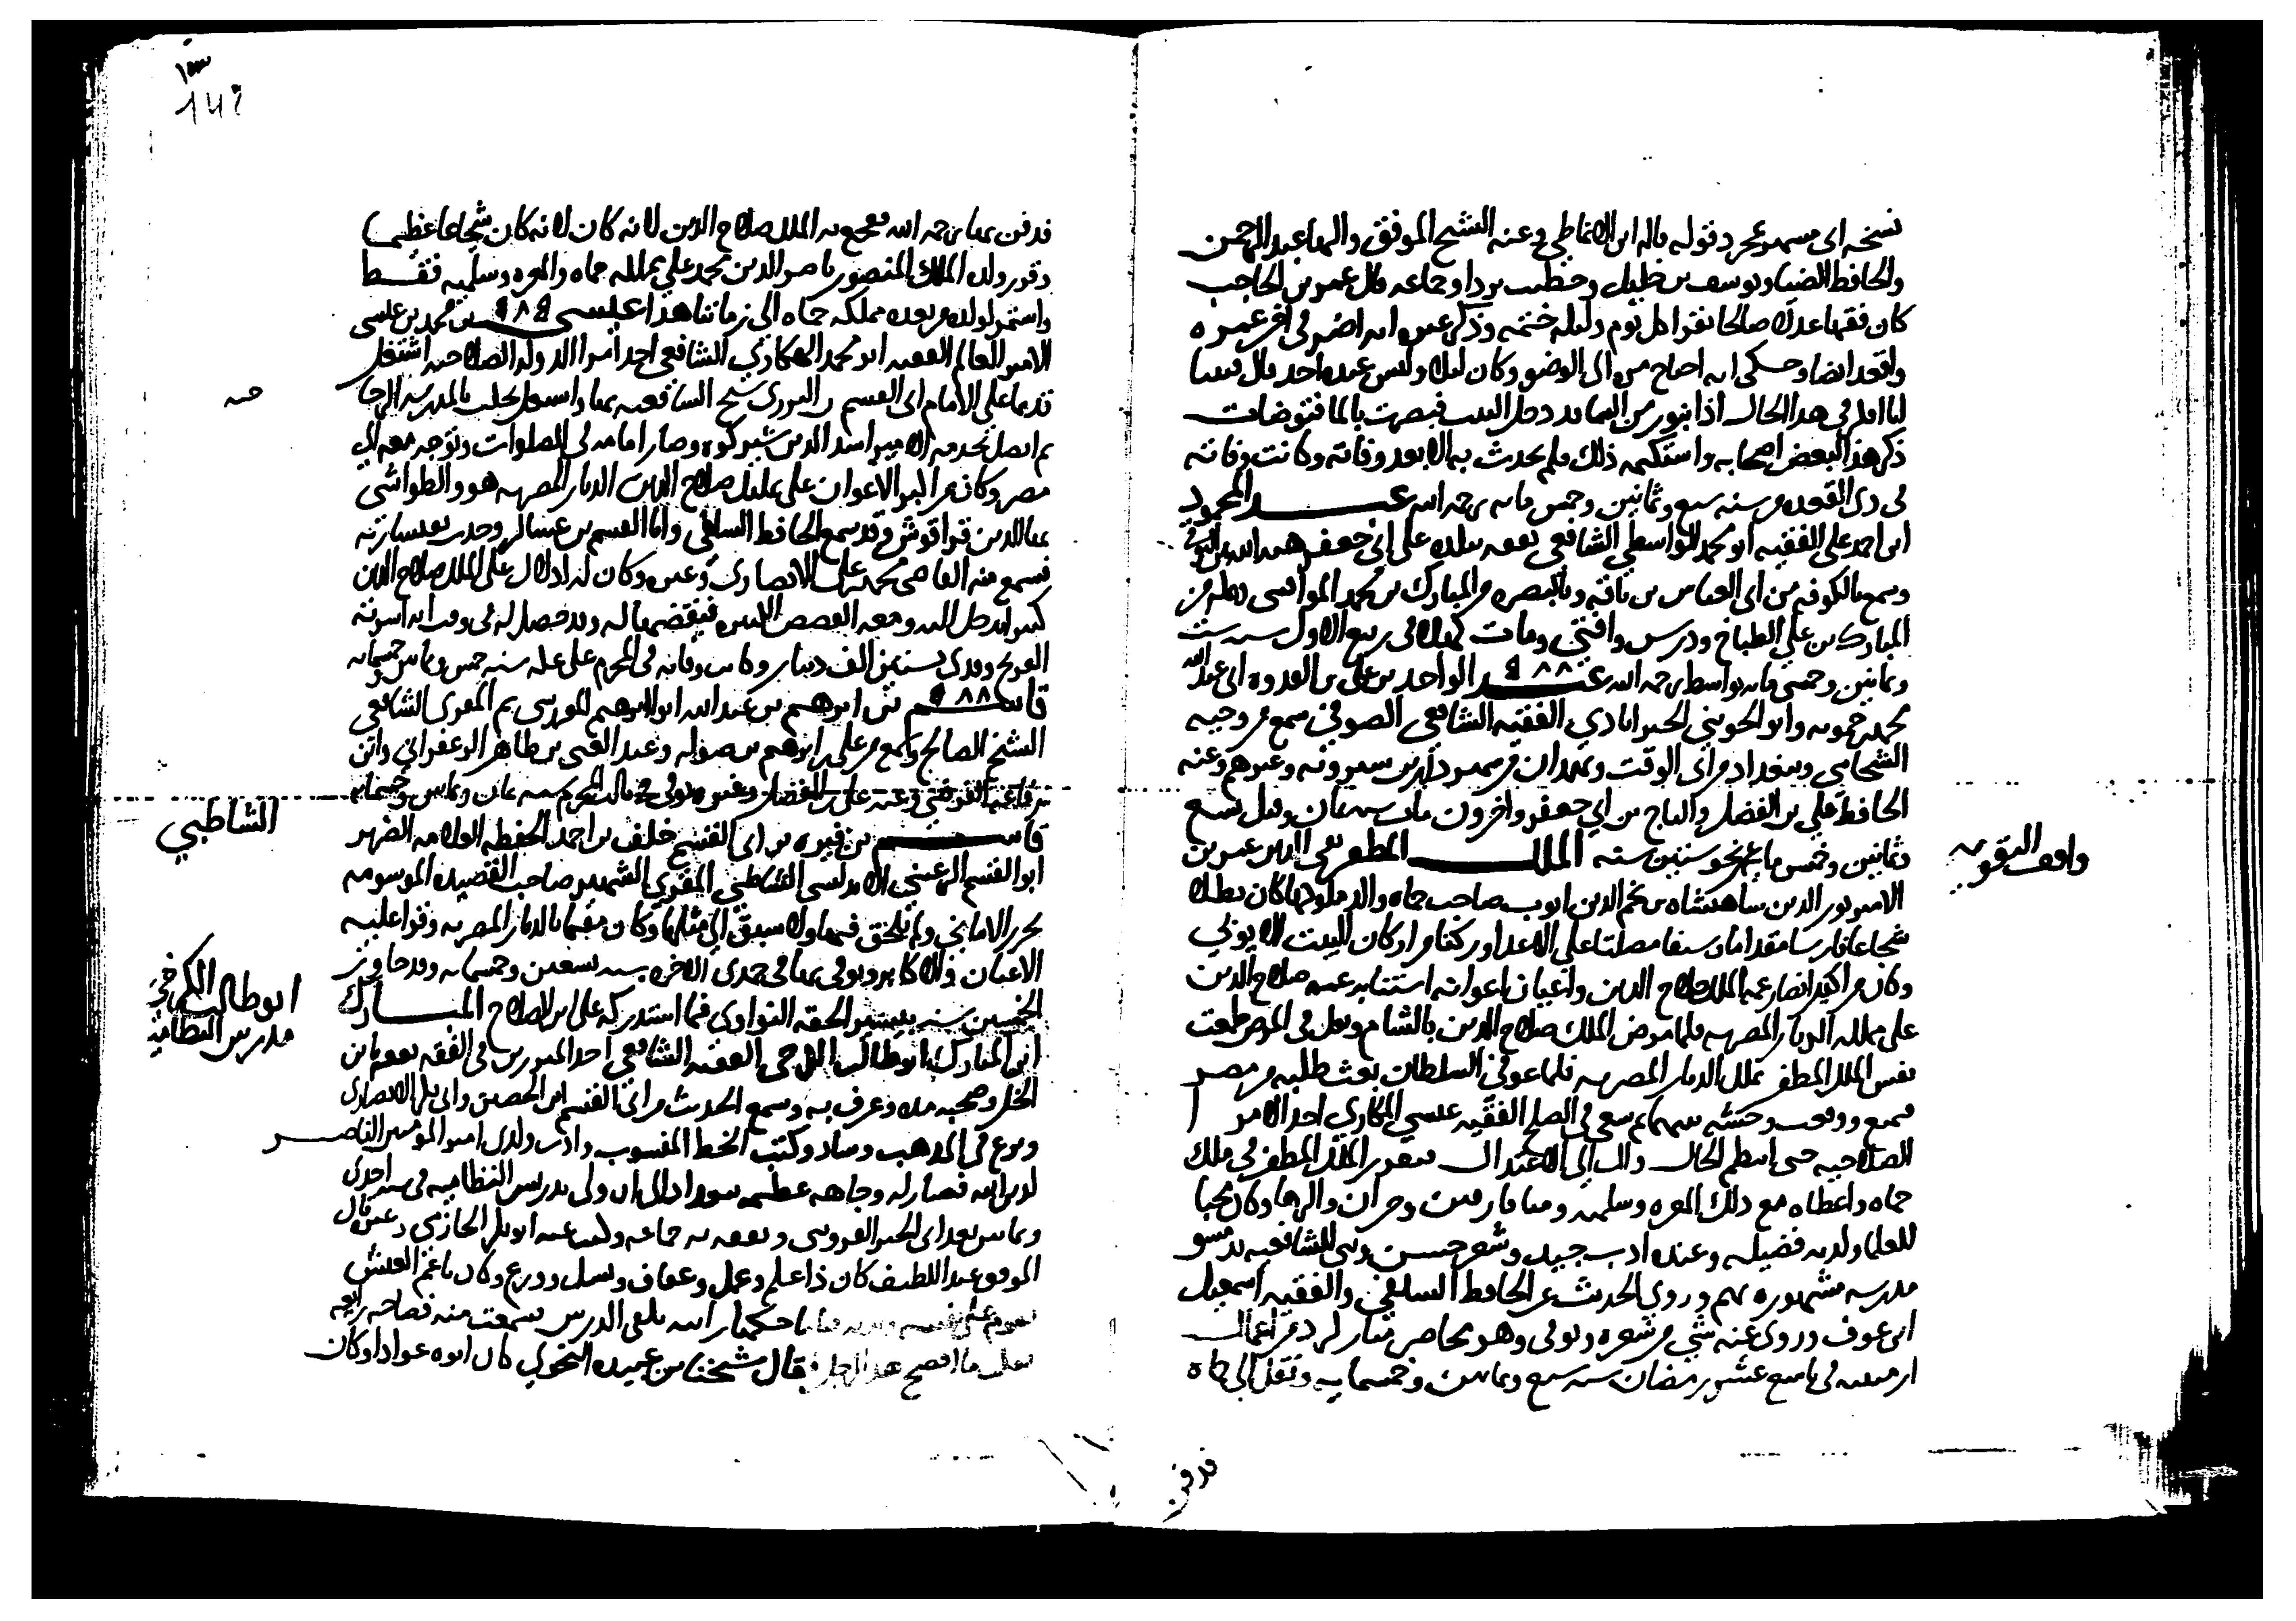 نسخه ابى مسهر وغير ذ قوله قاله ابن الانماطي وعنه الشيخ الموفق والبها عبد الرحمن
والحافظ الضيا ويوسف بن خليل وخطيب مردا وجماعه قال عمر بن الحاجب
كان فقيها عدلا صالحا يقرا كل يوم وليله ختمه وذكر غيره انه اضر في اخر عمره
واقعد ايضا وحكى انه احتاج مره الى الوضو وكان ليلا وليس عنده احد قال فبينا
انا في هذا الحال اذا بنور من السما قد دخل البيت فبصرت بالما فتوضات
ذكر هذا لبعض اصحابه واستكتمه ذلك فلم يحدث به الا بعد وفاته وكانت وفاته
في ذي القعده من سنه سبع وثمانين وخمس مايه رحمه الله عبد المحمود
ابن احمد علي الفقيه ابو محمد الواسطي الشافعي تفقه ببلده على ابي جعفر هبه الله بن
وسمع بالكوفه من ابى العباس بن ناقه وبالبصره من المبارك بن محمد المواقيتى ومكه من
المبارك بن علي الطباخ ودرس وافتى ومات كهلا في ربيع الاول سنه ست
وثمانين وخمس مايه بواسط رحمه الله عبد الواحد بن علي بن القدوه ابى عبد الله
محمد حمويه وابو الجويني الحير اباذي الفقيه الشافعي الصوفي سمع من وجيه
الشحامي وببغداد من ابى الوقت وبهمدان من شهردار بن شيرويه وغيرهم وعنه
الحافظ علي بن المفضل والتاج بن ابي جعفر واخرون مات سنه ثمان وقيل سبع
وثمانين وخمس مايه عن نحو ستين سنه الملك المظفر تقي الدين عمر بن
الامير نور الدين شاهنشاه بن نجم الدين ايوب صاحب حماه والد ملوكها كان بطلا
شجاعا فارسا مقداما وسيفا مصلتا على الاعدا وركنا من اركان البيت الايوبي
وكان من اكبر انصار عمه الملك صلاح الدين واعيان اعوانه استنابه عمه صلاح الدين
على مملكه الديار المصريه فلما مرض الملك صلاح الدين بالشام وثقل في المرض طمعت
نفس الملك المظفر بملك الديار المصريه فلما عوفي السلطان بعث طلبه من مصر
فمنع ووقعت وحشه بينهما ثم سعى في الصلح الفقيه عيسى الهكاري احد الامرا
الصلاحيه حتى انتظم الحال وال الى الاعتدال فتقرر الملك المظفر في ملك
حماه واعطاه مع ذلك المعره وسلميه وميافارقين وحران والرها وكان محبا
للعلما ولديه فضيله وعنده ادب جيد وشعر حسن وبنى للشافعيه بدمشق
مدرسه مشهوره بهم وروى الحديث عن الحافظ السلفي والفقيه اسمعيل
ابن عوف وروى عنه شي من شعره وتوفي وهو محاصر منازكرد من اعمال
ارمينيه في تاسع عشر رمضان سنه سبع وثمانين وخمسمايه ونقل الى حماه
فدفن
واقف التقويه
١٤٢
قد فن بها رحمه الله ففجع به الملك صلاح الدين لانه كان لانه كان شجاعا عظيما
وقرر ولده الملك المنصور ناصر الدين محمد علي مملكه حماه والمعره وسلميه فقط
واستمر لولده من بعده مملكه حماه الى زماننا هذا عيسى بن محمد بن عيسى
الامير العالم الفقيه ابو محمد الهكاري الشافعي احد امرا الدوله الصلاحيه اشتغل
قديما على الامام ابى القسم بن البزرى شيخ الشافعيه بها واشتغل بحلب بالمدرسه الزجاجيه
ثم اتصل بخدمه الامير اسد الدين شيركوه وصار امامه في الصلوات وتوجه معه الى
مصر وكان من اكبر الاعوان على تمليك صلاح الدين الديار المصريه هو والطواشي
بها الدين قراقوش وقد سمع الحافظ السلفي وابا القسم بن عساكر وحدث بقيساريه
فسمع منه القاضي محمد بن علي الانصاري وغيره وكان له ادلال على الملك صلاح الدين
كبير يدخل اليه ومعه القصص الكثيره فيقضيها له وقد حصل له في وقت انه اسرته
الفرنج وفدى بستين الف دينار وكانت وفاته في المحرم على عله سنه خمس وثمانين وخمسمايه
قاسم بن ابرهيم بن عبد الله ابو ابرهيم المقدسى ثم المصري الشافعي
الشيخ الصالح وسمع من علي بن ابرهيم بن صوله وعبد الغني بن طاهر الزعفراني وابن
رفاعه الفرضي وعنه علي بن المفضل وغيره وتوفي في ثالث المحرم سنه ثمان وثمانين وخمسمايه
قاسم بن فيره بن ابى القسم خلف بن احمد الحفظه العلامه الضرير
ابو القسم الرعيني الاندلسي الشاطبي المقري الشهير صاحب القصيده الموسومه
بحرز الاماني ولم يلحق فيها ولا سبق الى مثلها وكان مقيما بالديار المصريه وقرا عليه
الاعيان والاكابر وتوفي بها في جمدى الاخره سنه تسعين وخمسمايه وقد جاوز
الخمسين سنه بيسير الحقه النواوي فيما استدركه على ابن الصلاح المبارك
ابن المبارك ابو طالب الكرخي الفقيه الشافعي احد المبرزين في الفقه تفقه بابن
الخل وصحبه مده وعرف به وسمع الحديث من ابى القسم ابن الحصين وابى بكر الانصاري
وبرع في المذهب وساد وكتب الخط المنسوب وادب ولدى امير المومنين الناصر
لدين الله فصار له وجاهه عظيمه بهذا ولى تدريس النظاميه في سنه احدى
وثمانين بعد ابى الخير القزويني وتفقه به جماعه وكتب عنه ابو بكر الحازمي وغيره قال
الموفق عبد اللطيف كان ذا علم وعمل وعفاف ونسك وورع وكان ناعم العيش
يقوم على نفسه وبدنه قياما حكيما رايته يلقي الدرس فسمعت منه فصاحه رايعه
فقلت ما افصح هذا الرجل فقال شيخنا بن عبيده النحوي كان ابوه عوادا وكان
الشاطبي
ابو طالب الكرخي
مدرس النظاميه